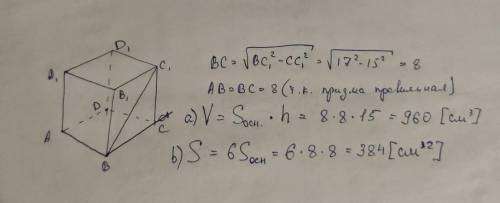 D₁
A₁ C₁
B₁
D
A C
B
BC = √BC₁² - CC₁² = √17² - 15² = 8
AB = BC = 8 (т.к. призма правильная)
a) V = Sосн. · h = 8 · 8 · 15 = 960 [см³]
b) S = 6Sосн = 6 · 8 · 8 = 384 [см²]